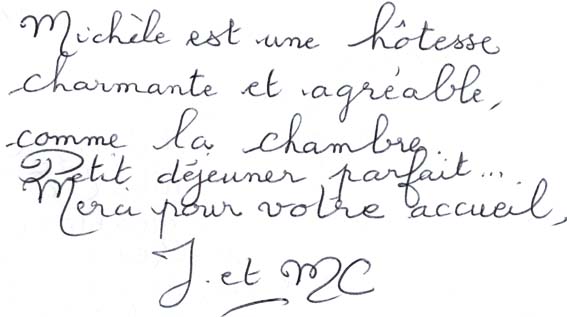 Michèle est une hôtesse
charmante et agréable,
comme la chambre.
Petit déjeuner parfait...
Merci pour votre accueil,
J. et MC